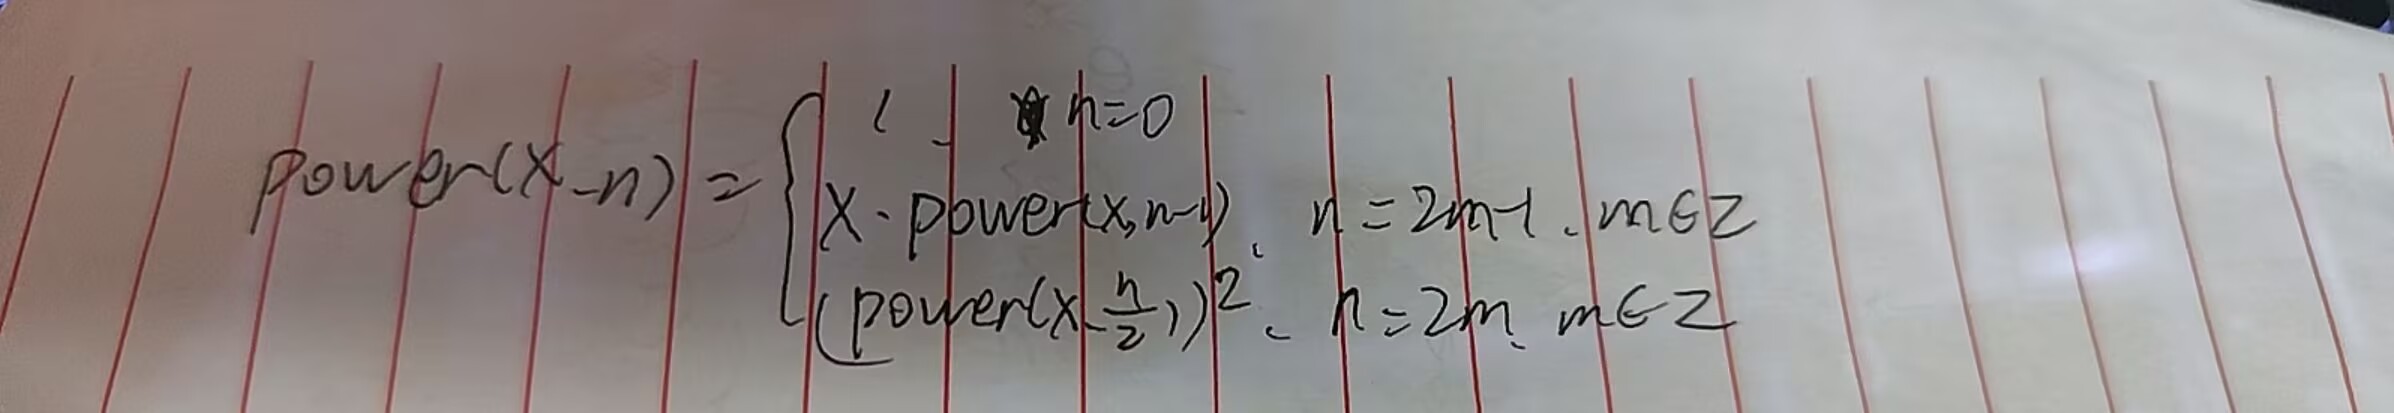 power(x,n) = { 1, n=0
x·power(x,n-1), n=2m-1, m∈Z
(power(x,n/2))², n=2m, m∈Z